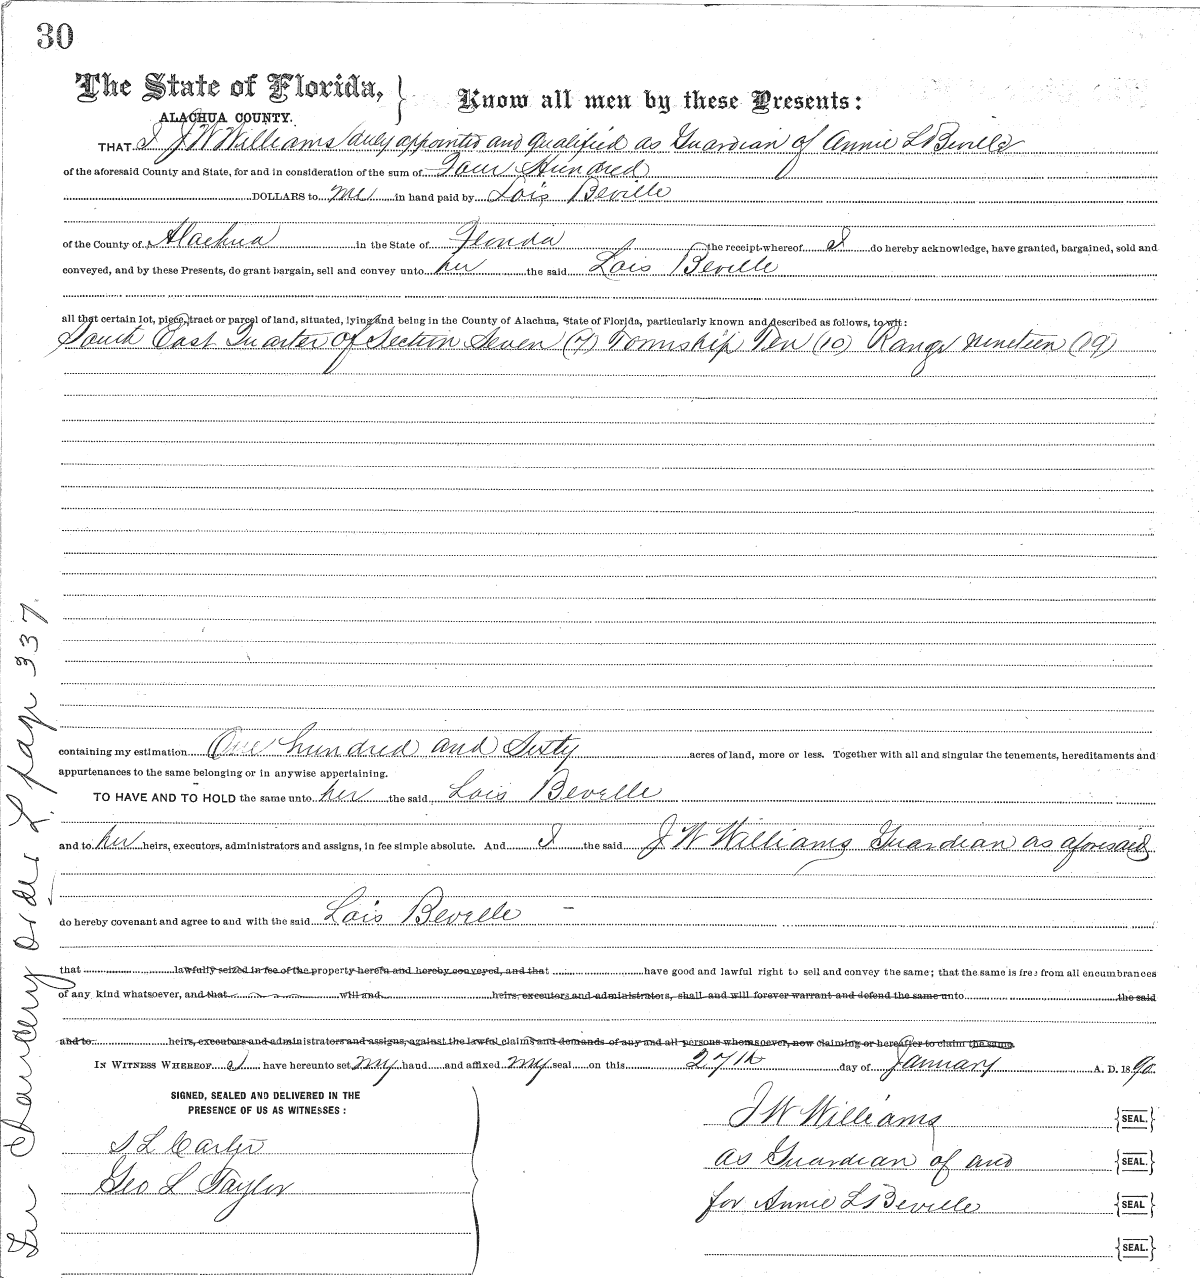 30
The State of Florida,
ALACHUA COUNTY.
Know all men by these Presents:
THAT I J W Williams duly appointed and qualified as Guardian of Annie L Beville
of the aforesaid County and State, for and in consideration of the sum of Four Hundred
DOLLARS to me in hand paid by Lois Beville
of the County of Alachua in the State of Florida the receipt whereof I do hereby acknowledge, have granted, bargained, sold and
conveyed, and by these Presents, do grant bargain, sell and convey unto her the said Lois Beville
all that certain lot, piece, tract or parcel of land, situated, lying and being in the County of Alachua, State of Florida, particularly known and described as follows, to wit:
South East Quarter of Section Seven (7) Township Ten (10) Range nineteen (19)
containing my estimation One hundred and Sixty acres of land, more or less. Together with all and singular the tenements, hereditaments and
appurtenances to the same belonging or in anywise appertaining.
TO HAVE AND TO HOLD the same unto her the said Lois Beville
and to her heirs, executors, administrators and assigns, in fee simple absolute. And I the said J W Williams Guardian as aforesaid
do hereby covenant and agree to and with the said Lois Beville
that lawfully seized in fee of the property herein and hereby conveyed, and that have good and lawful right to sell and convey the same; that the same is free from all encumbrances
of any kind whatsoever, and that will and heirs, executors and administrators, shall and will forever warrant and defend the same unto the said
and to heirs, executors and administrators and assigns, against the lawful claims and demands of any and all persons whomsoever, now claiming or hereafter to claim the same.
IN WITNESS WHEREOF I have hereunto set my hand and affixed my seal on this 27th day of January A. D. 1890.
SIGNED, SEALED AND DELIVERED IN THE
PRESENCE OF US AS WITNESSES:
S L Carter
Geo L Taylor
J W Williams {SEAL.}
as Guardian of and {SEAL.}
for Annie L Beville {SEAL}
{SEAL.}
Chancery order L. page 337